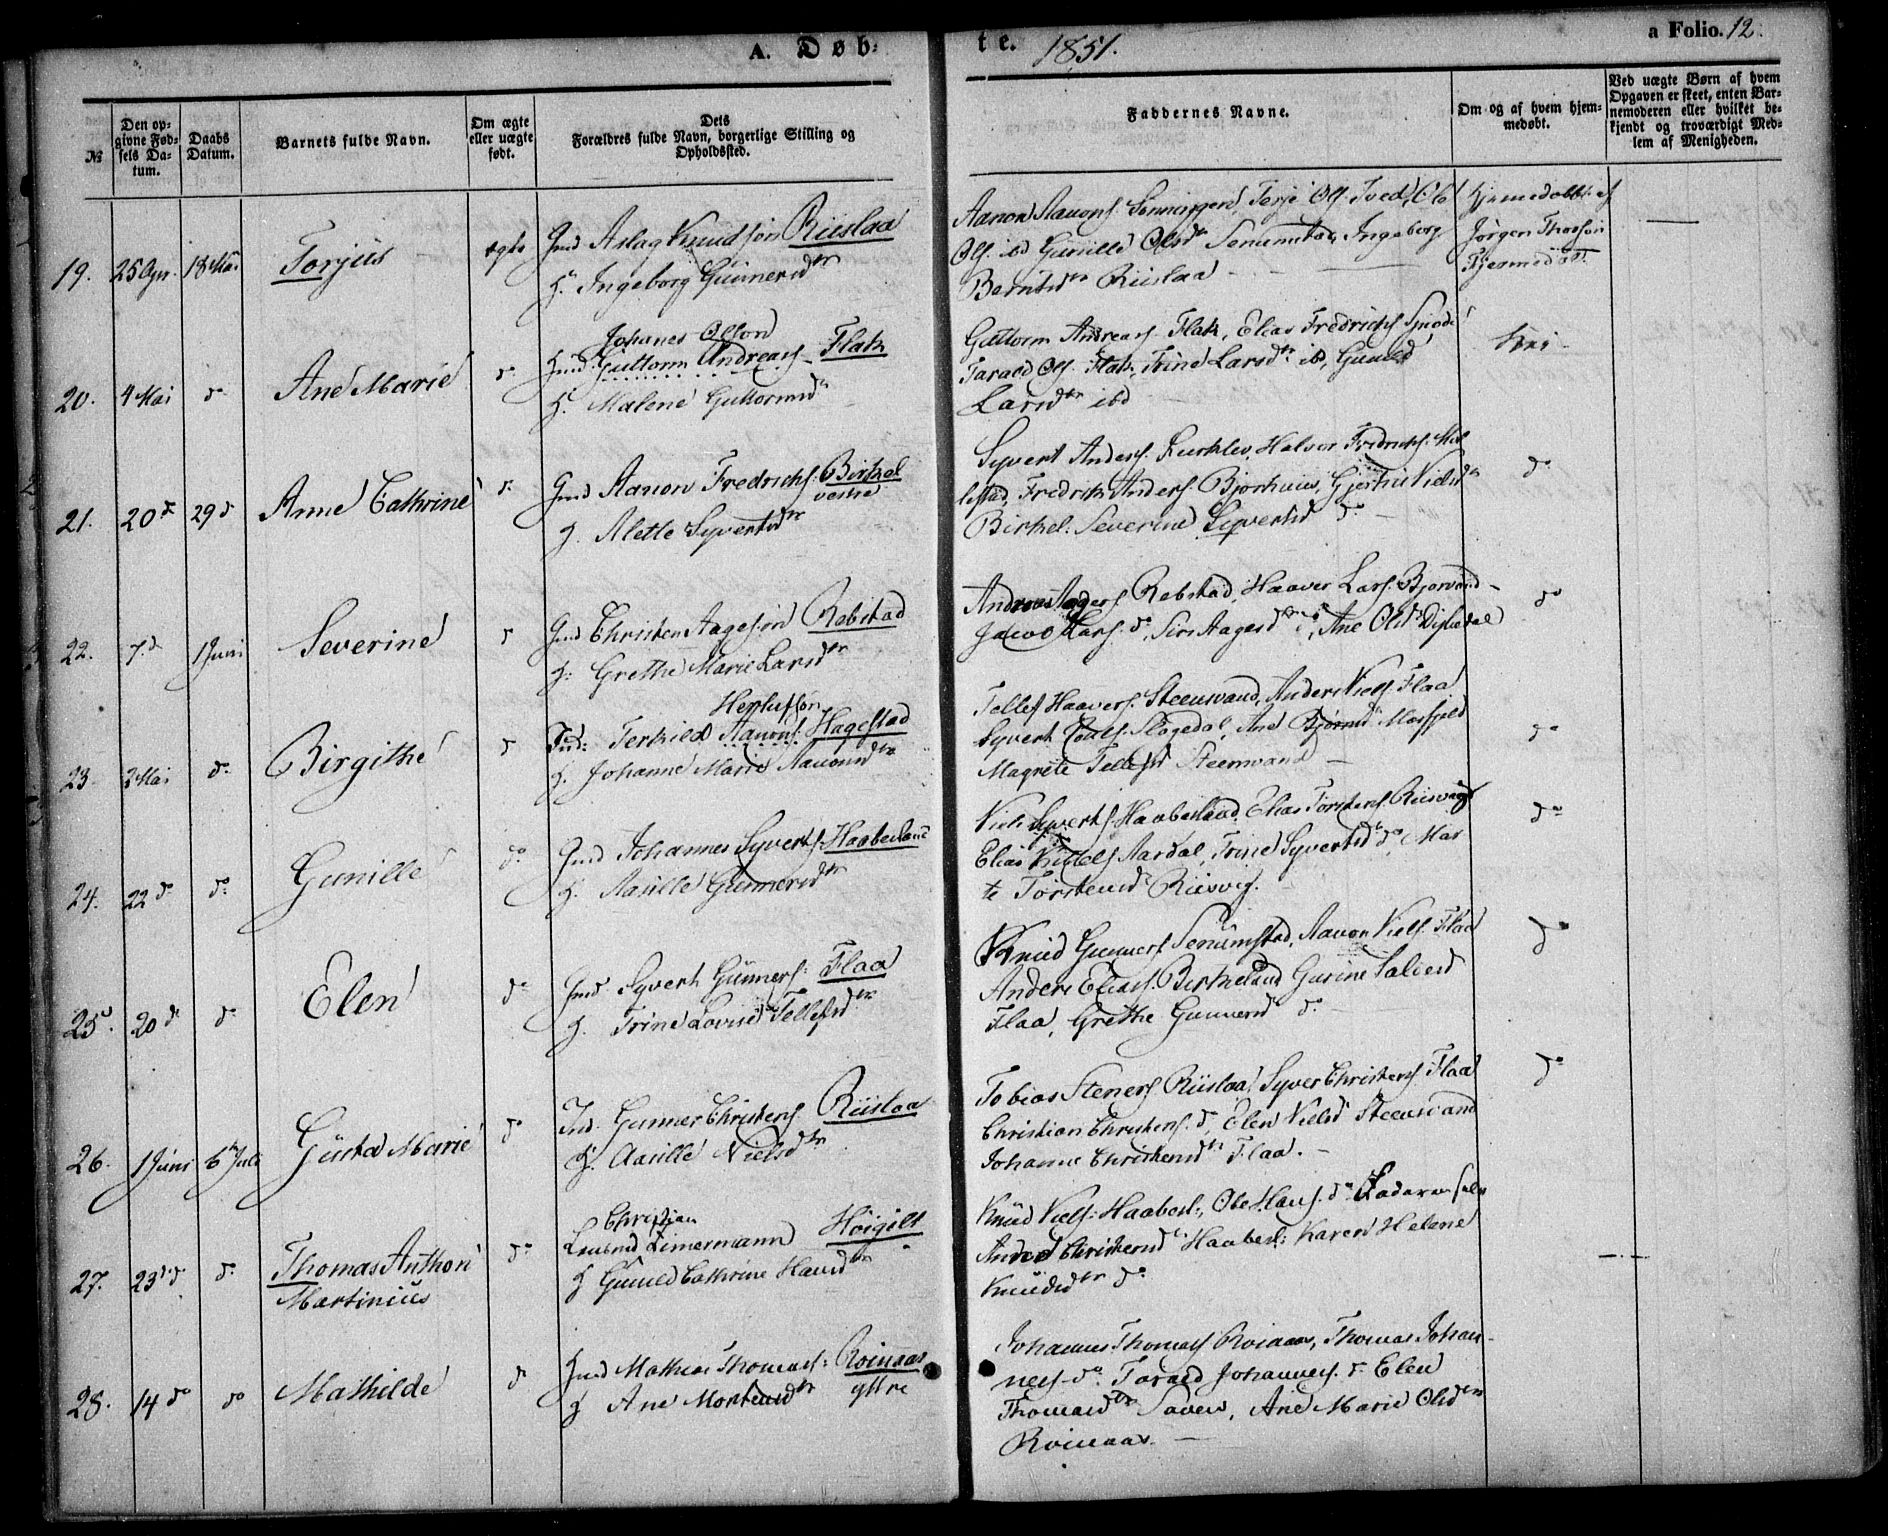 A. Døb-
te. 1851.
a Folio. 12.
№
Den op-
givne Fød-
sels Da-
tum.
Daabs
Datum.
Barnets fulde Navn.
Om ægte
eller uægte
født.
Dets
Forældres fulde Navn, borgerlige Stilling og
Opholdssted.
Faddernes Navne.
Om og af hvem hjem-
medøbt.
Ved uægte Børn af hvem
Opgaven er skeet, enten Bar-
nemoderen eller hvilket be-
kjendt og troværdigt Med-
lem af Menigheden.
19. 25 Apr. 18 Mai Torjus ægte Gmd Aslag Knudsøn Riislaa
H. Ingeborg Gunnersdtr
Aanon Aanons. Terje Ols. Tved, Ole
Ols. ibd Gunille Olsdtr Senumstad, Ingeborg
Berntsdtr Riislaa
hjemedøbt af
Jørgen Thorsøn
20. 4 Mai do Ane Marie do
Johanes Olson
Gmd Guttorm Andreas. Flak
H. Malene Guttormsd
Guttorm Andreas. Flak, Elias Fredrichs.
Tarald Ols. Flak, Trine Larsdtr ibd, Gunild
Larsdtr ibd
21. 20 do 29 do Anne Cathrine do Gmd Aanon Fredrichs. Birkel
vestre
H. Alette Syvertsdtr
Syvert Anders. Halvor Fredrichs.
Fredrik Anders. Bjorhuus, Nielsdtr
Birkel. Severine Syvertsd do
do
22. 7 do 1 Juni Severine do Gmd Christen Aagesøn Rebstad
H: Grethe Marie Larsdtr
Anders Aagers Rebstad, Haaver Lars. Bjorvand
Jacob Lars. do, Siri Aagesd do, Ane Olsd
do
23. 2 Mai do Birgithe do
Herlufsøn
Ind: Terkild Aanons. Hagestad
H. Johanne Marie Aanonsdtr
Tellef Haavers. Steenvand, Anders Niels. Flaa
Syvert Stogedal, Ane Bjørnsd Mosfjeld
Magrete Tellefsd Steenvand
do
24. 22 do do Gunille do Gmd Johannes Syverts. Haabesland
H. Aasille Gunnersdtr
Niels Syverts. Haabesland, Elias Torstens. Riisveg
Elias Aardal, Trine Syvertsd do, Mar-
te Torstensd Riisveg.
do
25. 20 do do Elen do Gmd Syvert Gunners. Flaa
H. Trine Lovise Tellefsdtr
Knud Gunners. Senumstad, Aanon Niels. Flaa
Anders Elias. Birkeland Gurine Salvesd
Flaa, Grethe Gunnersd do
do
26. 1 Juni 6te Juli Gusta Marie do Ind. Gunner Christens. Riislaa
H. Aasille Nielsdtr
Tobias Steners. Riislaa, Syver Christens. Flaa
Christian Christens. do, Elen Nielsd Steenvand
Johanne Christensdtr Flaa.
do
27. 23 do do Thomas Anthon
Martinius do
Christian
Zimermann Høigilt
H Gunild Cathrine Hansdtr
Knud Niels. Haabesl., Ole Hans. do
Christensd Haabesl: Karen Helene
Knudsdtr do
28. 14 do do Mathilde do Gmd Mathias Thomas. Roinaas
yttre
H Ane Mortensdtr
Johannes Thomas. Roinaas, Thomas Johan-
nes. do. Tarald Johannes. do Elen
Thomasdtr Ane Marie Olsdtr
Roinaas.